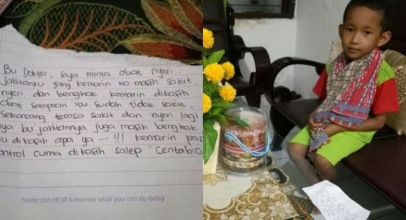 Bu Dokter, saya minta obat nyeri
jahitanku yang kemarin kok masih sakit,
nyeri dan bengkak kemarin dikasih
obat sampean itu sudah tidak sakit,
Sekarang terasa sakit dan nyeri lagi
ya bu jahitannya juga masih bengkak
su dikasih apa ya --- !!! kemarin pas
ontrol cuma dikasih salep Centabio
Never put off till tomorrow what you can do today